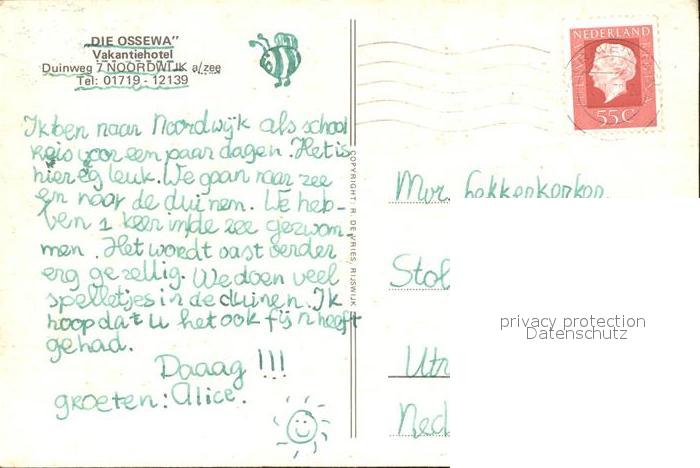 „DIE OSSEWA”
Vakantiehotel
Duinweg 7 NOORDWIJK a/zee
Tel: 01719 - 12139
Ik ben naar Noordwijk als school
reis voor een paar dagen. Het is
hier eg leuk. We gaan naar zee
en naar de duinen. We heb-
ben 1 keer in de zee gezwom-
men. Het wordt vast verder
erg gezellig. We doen veel
spelletjes in de duinen. Ik
hoop dat u het ook fijn heeft
gehad.
Daaag !!!
groeten: Alice.
COPYRIGHT: R. DE VRIES, RIJSWIJK
NEDERLAND
55 C
Mvr.
Stol
Utr
Ned
privacy protection
Datenschutz